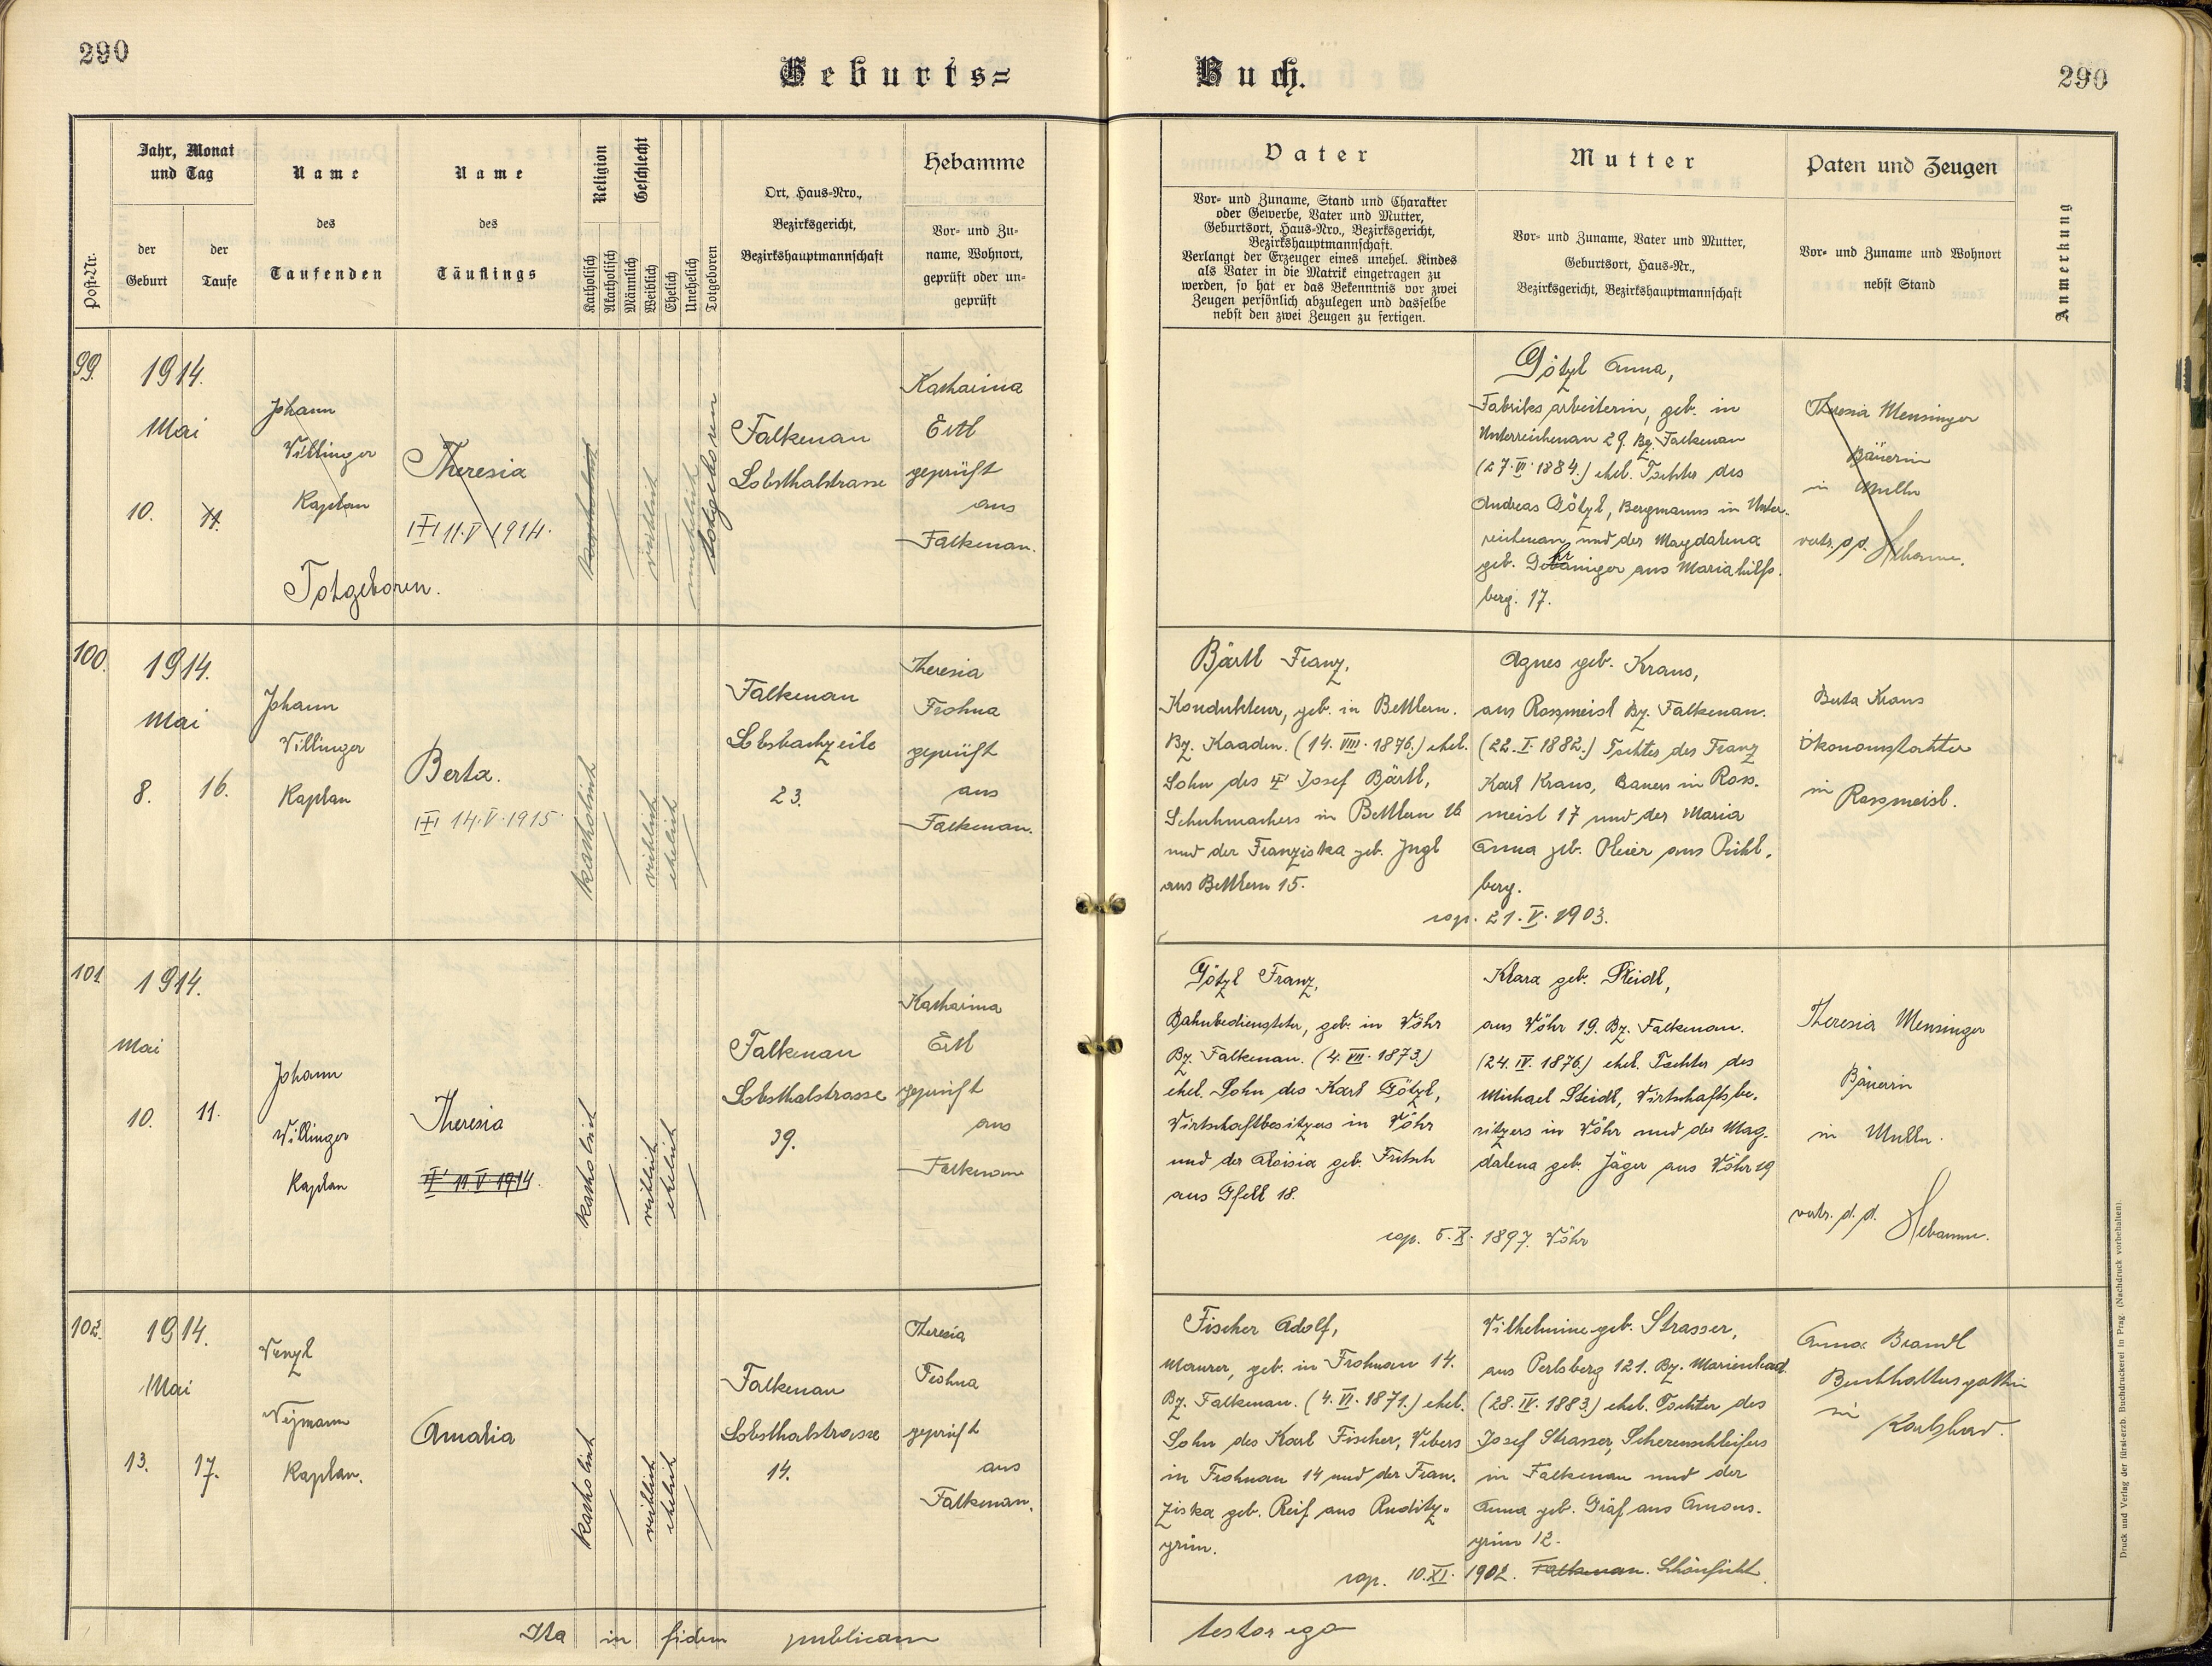 290
Geburts=
Buch.
290
Post-Nr.
Jahr, Monat
und Tag
der
Geburt
der
Taufe
Name
des
Taufenden
Name
des
Täuflings
Religion
Katholisch
Akatholisch
Geschlecht
Männlich
Weiblich
Ehelich
Unehelich
Totgeboren
Ort, Haus-Nro.,
Bezirksgericht,
Bezirkshauptmannschaft
Hebamme
Vor- und Zu-
name, Wohnort,
geprüft oder un-
geprüft
Vater
Vor- und Zuname, Stand und Charakter
oder Gewerbe, Vater und Mutter,
Geburtsort, Haus-Nro., Bezirksgericht,
Bezirkshauptmannschaft.
Verlangt der Erzeuger eines unehel. Kindes
als Vater in die Matrik eingetragen zu
werden, so hat er das Bekenntnis vor zwei
Zeugen persönlich abzulegen und dasselbe
nebst den zwei Zeugen zu fertigen.
Mutter
Vor- und Zuname, Vater und Mutter,
Geburtsort, Haus-Nr.,
Bezirksgericht, Bezirkshauptmannschaft
Paten und Zeugen
Vor- und Zuname und Wohnort
nebst Stand
Anmerkung
99.
1914.
Mai
10.
11.
Johann
Villinger
Kaplan
Theresia
11.V.1914.
Totgeboren.
katholisch
weiblich
unehelich
totgeboren
Falkenau
Lobsthalstrasse
Katharina
Ertl
geprüft
aus
Falkenau.
Götzl Anna,
Fabriksarbeiterin, geb. in
Unterreichenau 29. Bz. Falkenau
(27.VI.1884.) ehel. Tochter des
Andreas Götzl, Bergmanns in Unter-
reichenau und der Magdalena
geb. aus Mariahilfs-
berg. 17.
Theresia Mensinger
Bäuerin
in
vertr. d. d. Hebamme.
100.
1914.
Mai
8.
16.
Johann
Villinger
Kaplan
Berta.
14.V.1915.
katholisch
weiblich
ehelich
Falkenau
Lobsbachzeile
23.
Theresia
Frohna
geprüft
aus
Falkenau.
Bärtl Franz,
Kondukteur, geb. in Bettlern.
Bz. Kaaden. (14.VIII.1876.) ehel.
Sohn des Josef Bärtl,
Schuhmachers in Bettlern 16
und der Franziska geb. Ingl
aus Bettlern 15.
Agnes geb. Kraus,
aus Rossmeisl Bz. Falkenau.
(22.I.1882.) Tochter des Franz
Karl Kraus, Bauers in Ross-
meisl 17 und der Maria
Anna geb. aus Pichl-
berg.
cop. 21.V.1903.
Berta Kraus
Ökonomstochter
in Rossmeisl.
101
1914.
Mai
10.
11.
Johann
Villinger
Kaplan
Theresia
11 V 1914.
katholisch
weiblich
ehelich
Falkenau
Lobsthalstrasse
39.
Katharina
Ertl
geprüft
aus
Falkenau
Götzl Franz,
Bahnbediensteter, geb. in Wöhr
Bz. Falkenau. (4.VII.1873.)
ehel. Sohn des Karl Götzl,
Wirtschaftbesitzers in Wöhr
und der Aloisia geb. Fritsch
aus Gfell 18.
Klara geb. Steidl,
aus Wöhr 19. Bz. Falkenau.
(24.IV.1876.) ehel. Tochter des
Michael Steidl, Wirtschaftsbe-
sitzers in Wöhr und der Mag-
dalena geb. Jäger aus Wöhr 19
cop. 5.X.1897. Wöhr
Theresia Mensinger
Bäuerin
in
vertr. d. d. Hebamme.
102.
1914.
Mai
13.
17.
Wenzl
Kaplan.
Amalia
katholisch
weiblich
ehelich
Falkenau
Lobsthalstrasse
14.
Theresia
Frohna
geprüft
aus
Falkenau.
Fischer Adolf,
Maurer, geb. in Frohnau 14.
Bz. Falkenau. (4.VI.1871.) ehel.
Sohn des Karl Fischer, Webers
in Frohnau 14 und der Fran-
ziska geb. Reif aus Ruditz-
grün.
Wilhelmine geb. Strasser,
aus Perlsberg 121. Bz. Marienbad.
(28.IV.1883.) ehel. Tochter des
Josef Strasser, Scherenschleifers
in Falkenau und der
Anna geb. Gräf aus Amons-
grün 12.
cop. 10.XI.1902. Falkenau. Schönficht.
Anna Brandl
Buchhaltersgattin
in Karlsbad.
Ita in fidem publicam
testor ego
Druck und Verlag der fürst-erzb. Buchdruckerei in Prag. (Nachdruck vorbehalten).